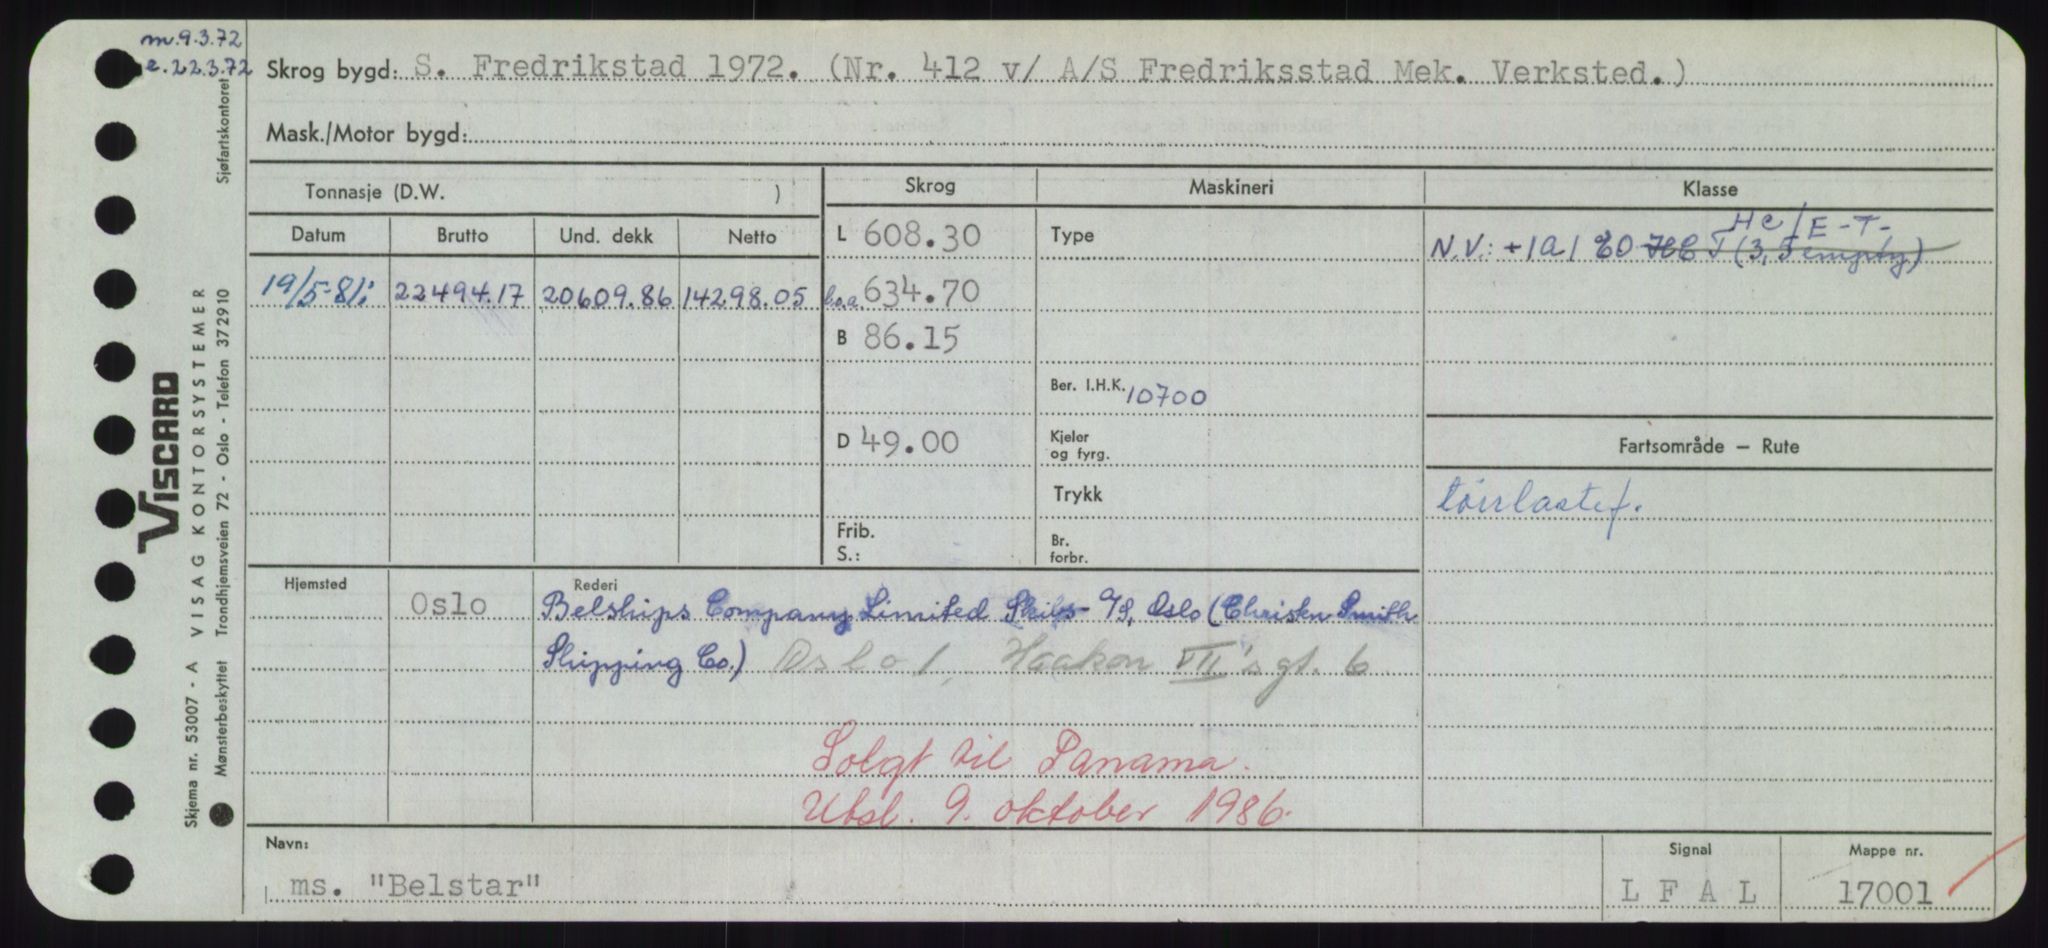 m.9.3.72
e.22.3.72
Skrog bygd: S. Fredrikstad 1972. (Nr. 412 v/ A/S Fredriksstad Mek. Verksted.)
Mask./Motor bygd:
Tonnasje (D.W. )
Skrog
Maskineri
Klasse
Datum
Brutto
Und. dekk
Netto
19/5-81:
22494.17
20609.86
14298.05
L 608.30
l.o.a. 634.70
B 86.15
D 49.00
Frib.
S.:
Type
Ber. I.H.K. 10700
Kjeler
og fyrg.
Trykk
Br.
forbr.
HC/E-T-
N.V.: +1A1 EO HC T (3, 5 empty)
Fartsområde – Rute
tørrlastef.
Hjemsted
Oslo
Rederi
Belships Company Limited Skibs-A/S, Oslo (Christen Smith
Shipping Co.) Oslo 1, Haakon VII's gt. 6
Solgt til Panama.
Utsl. 9. oktober 1986.
Navn:
ms. "Belstar"
Signal
L F A L
Mappe nr.
17001
Skjema nr. 53007 - A VISAG KONTORSYSTEMER
Mønsterbeskyttet Trondhjemsveien 72 - Oslo - Telefon 372910
Sjøfartskontoret
VISCARD